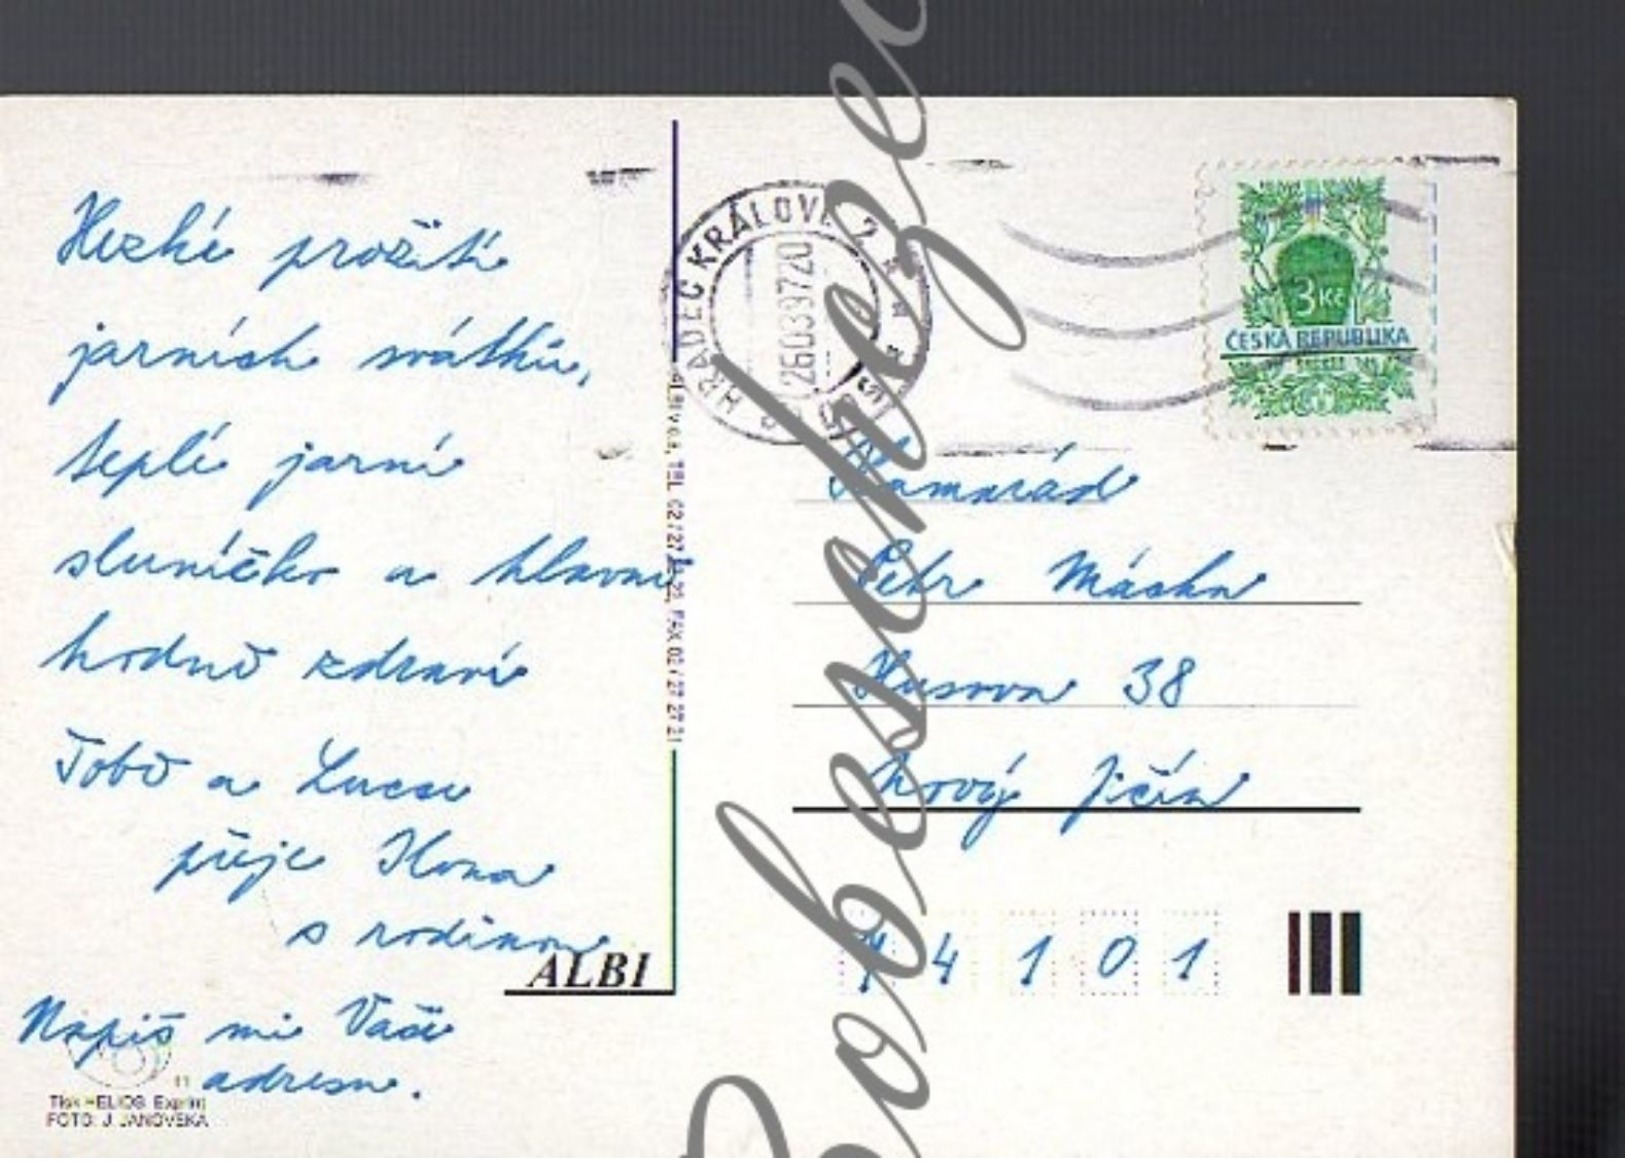 Hezké prožití
jarních svátků,
teplé jarní
sluníčko a hlavně
hodně zdraví
Tobě a Lucce
přeje Ilona
s rodinou
ALBI
Napiš mi Vaši
adresu.
11
Tisk HELIOS Exprint
FOTO: J. JANOVSKÁ
HRADEC KRÁLOVÉ 2
26039720
3 Kč
ČESKÁ REPUBLIKA
Kamarád
Petr Máska
Husova 38
Nový Jičín
74101